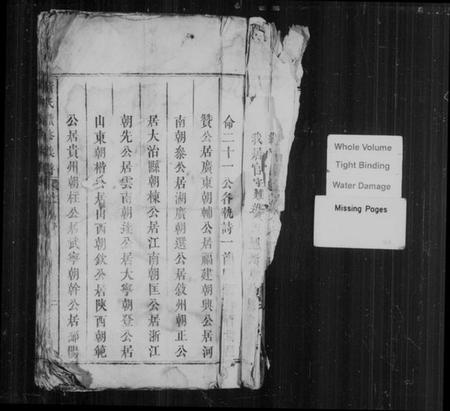 命二十一公各執詩一首
贊公居廣東朝輔公居福建朝興公居河
南朝泰公居湖廣朝選公居敘州朝正公
居大治縣朝棟公居江南朝匡公居浙江
朝先公居雲南朝 公居大寧朝登公居
山東朝楷公居山西朝欽公居陝西朝範
公居貴州朝柱公居武寧朝幹公居
Whole Volume
Tight Binding
Water Damage
Missing Pages